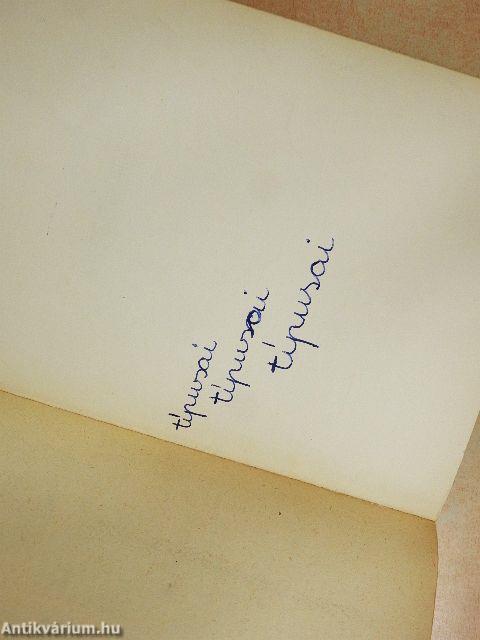 típusai
típusai
típusai
Antikvárium.hu